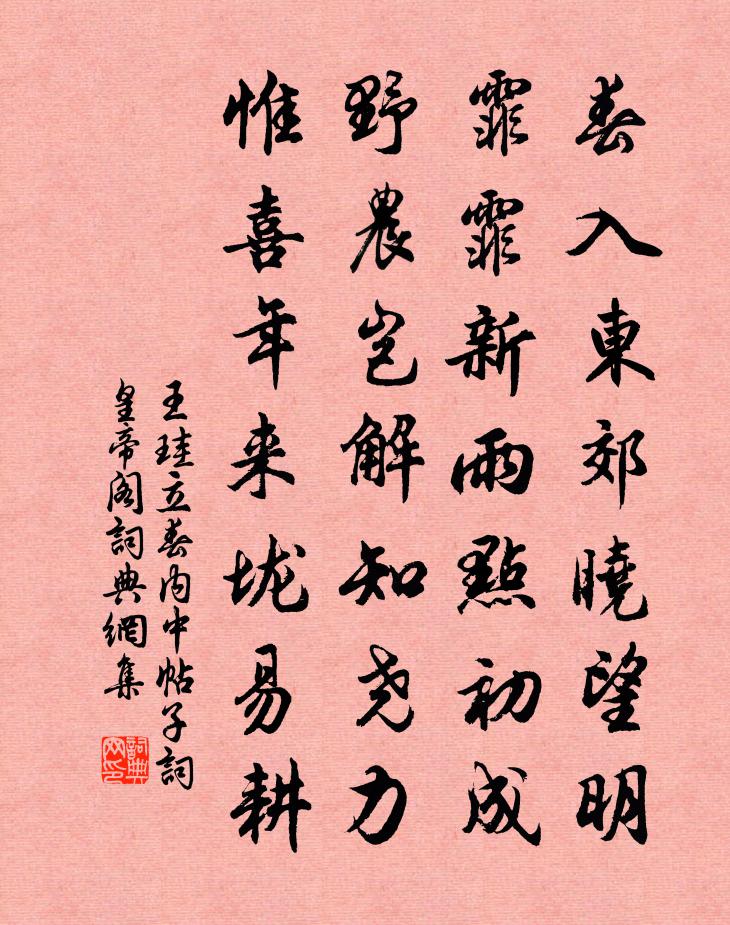 春入東郊曉望明
霏霏新雨點初成
野農岂解知尧力
惟喜年来垅易耕
王珪立春内中帖子詞
皇帝阁詞典網集
詞典网印